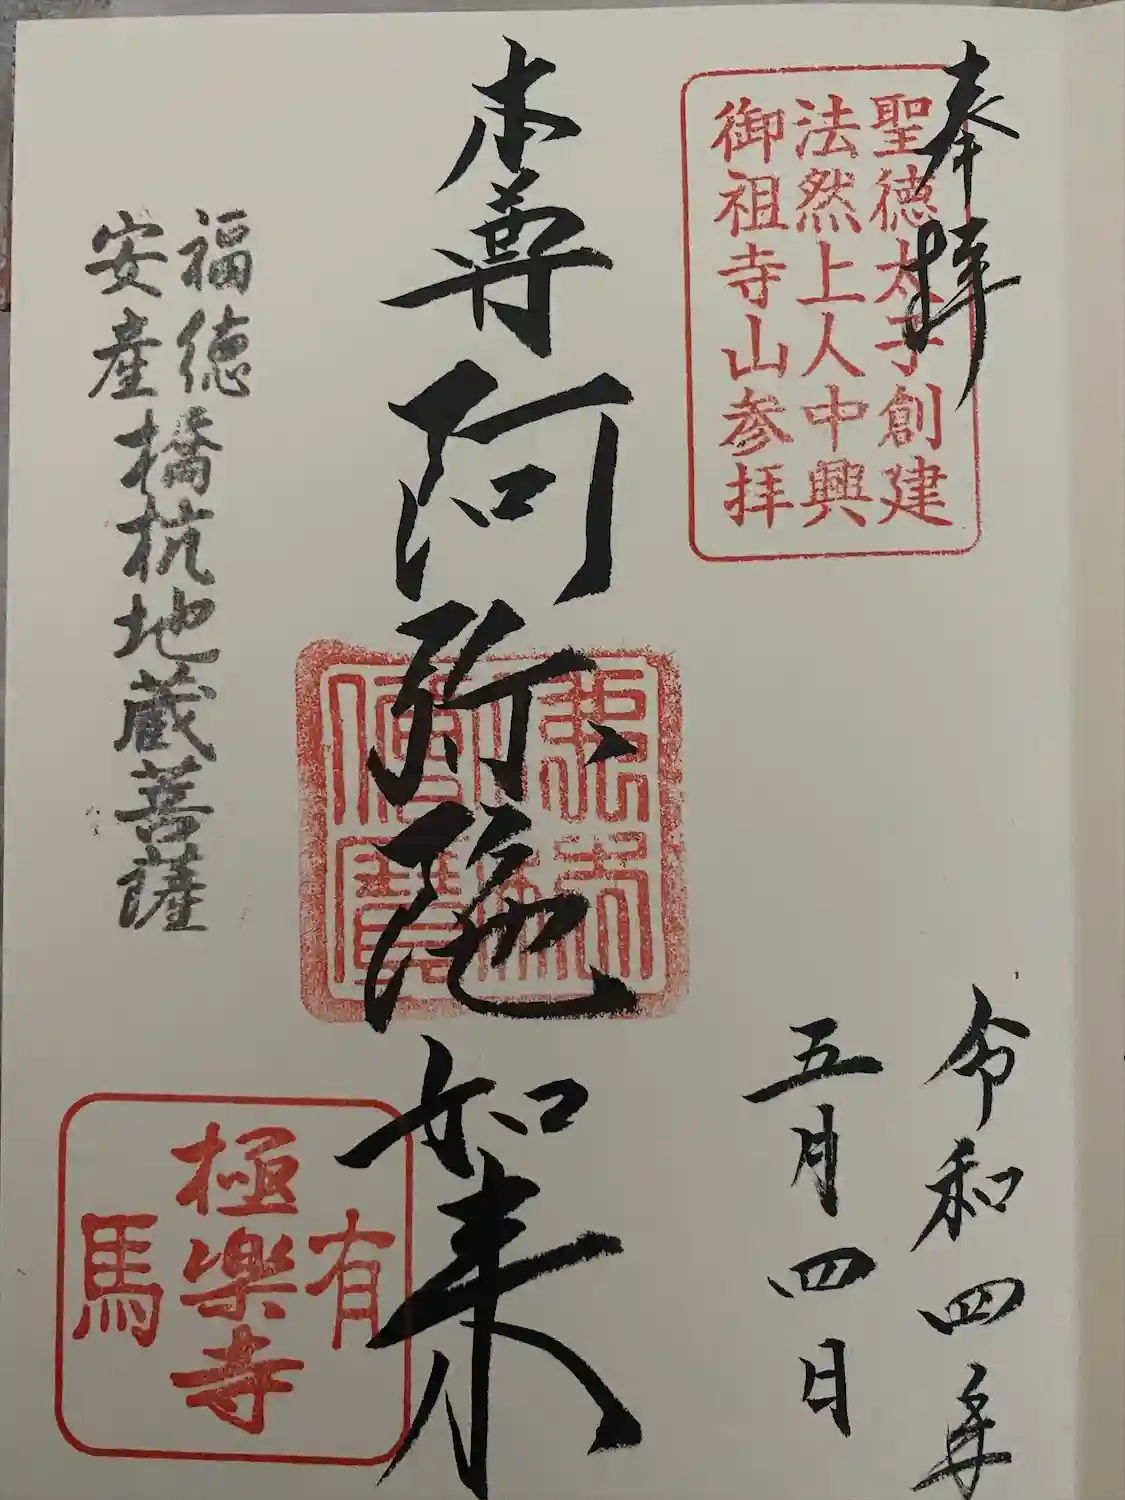 奉拝
聖徳太子創建
法然上人中興
御祖寺山参拝
令和四年
五月四日
本尊阿弥陀如来
福徳
安産
橋杭地蔵菩薩
有馬
極楽寺